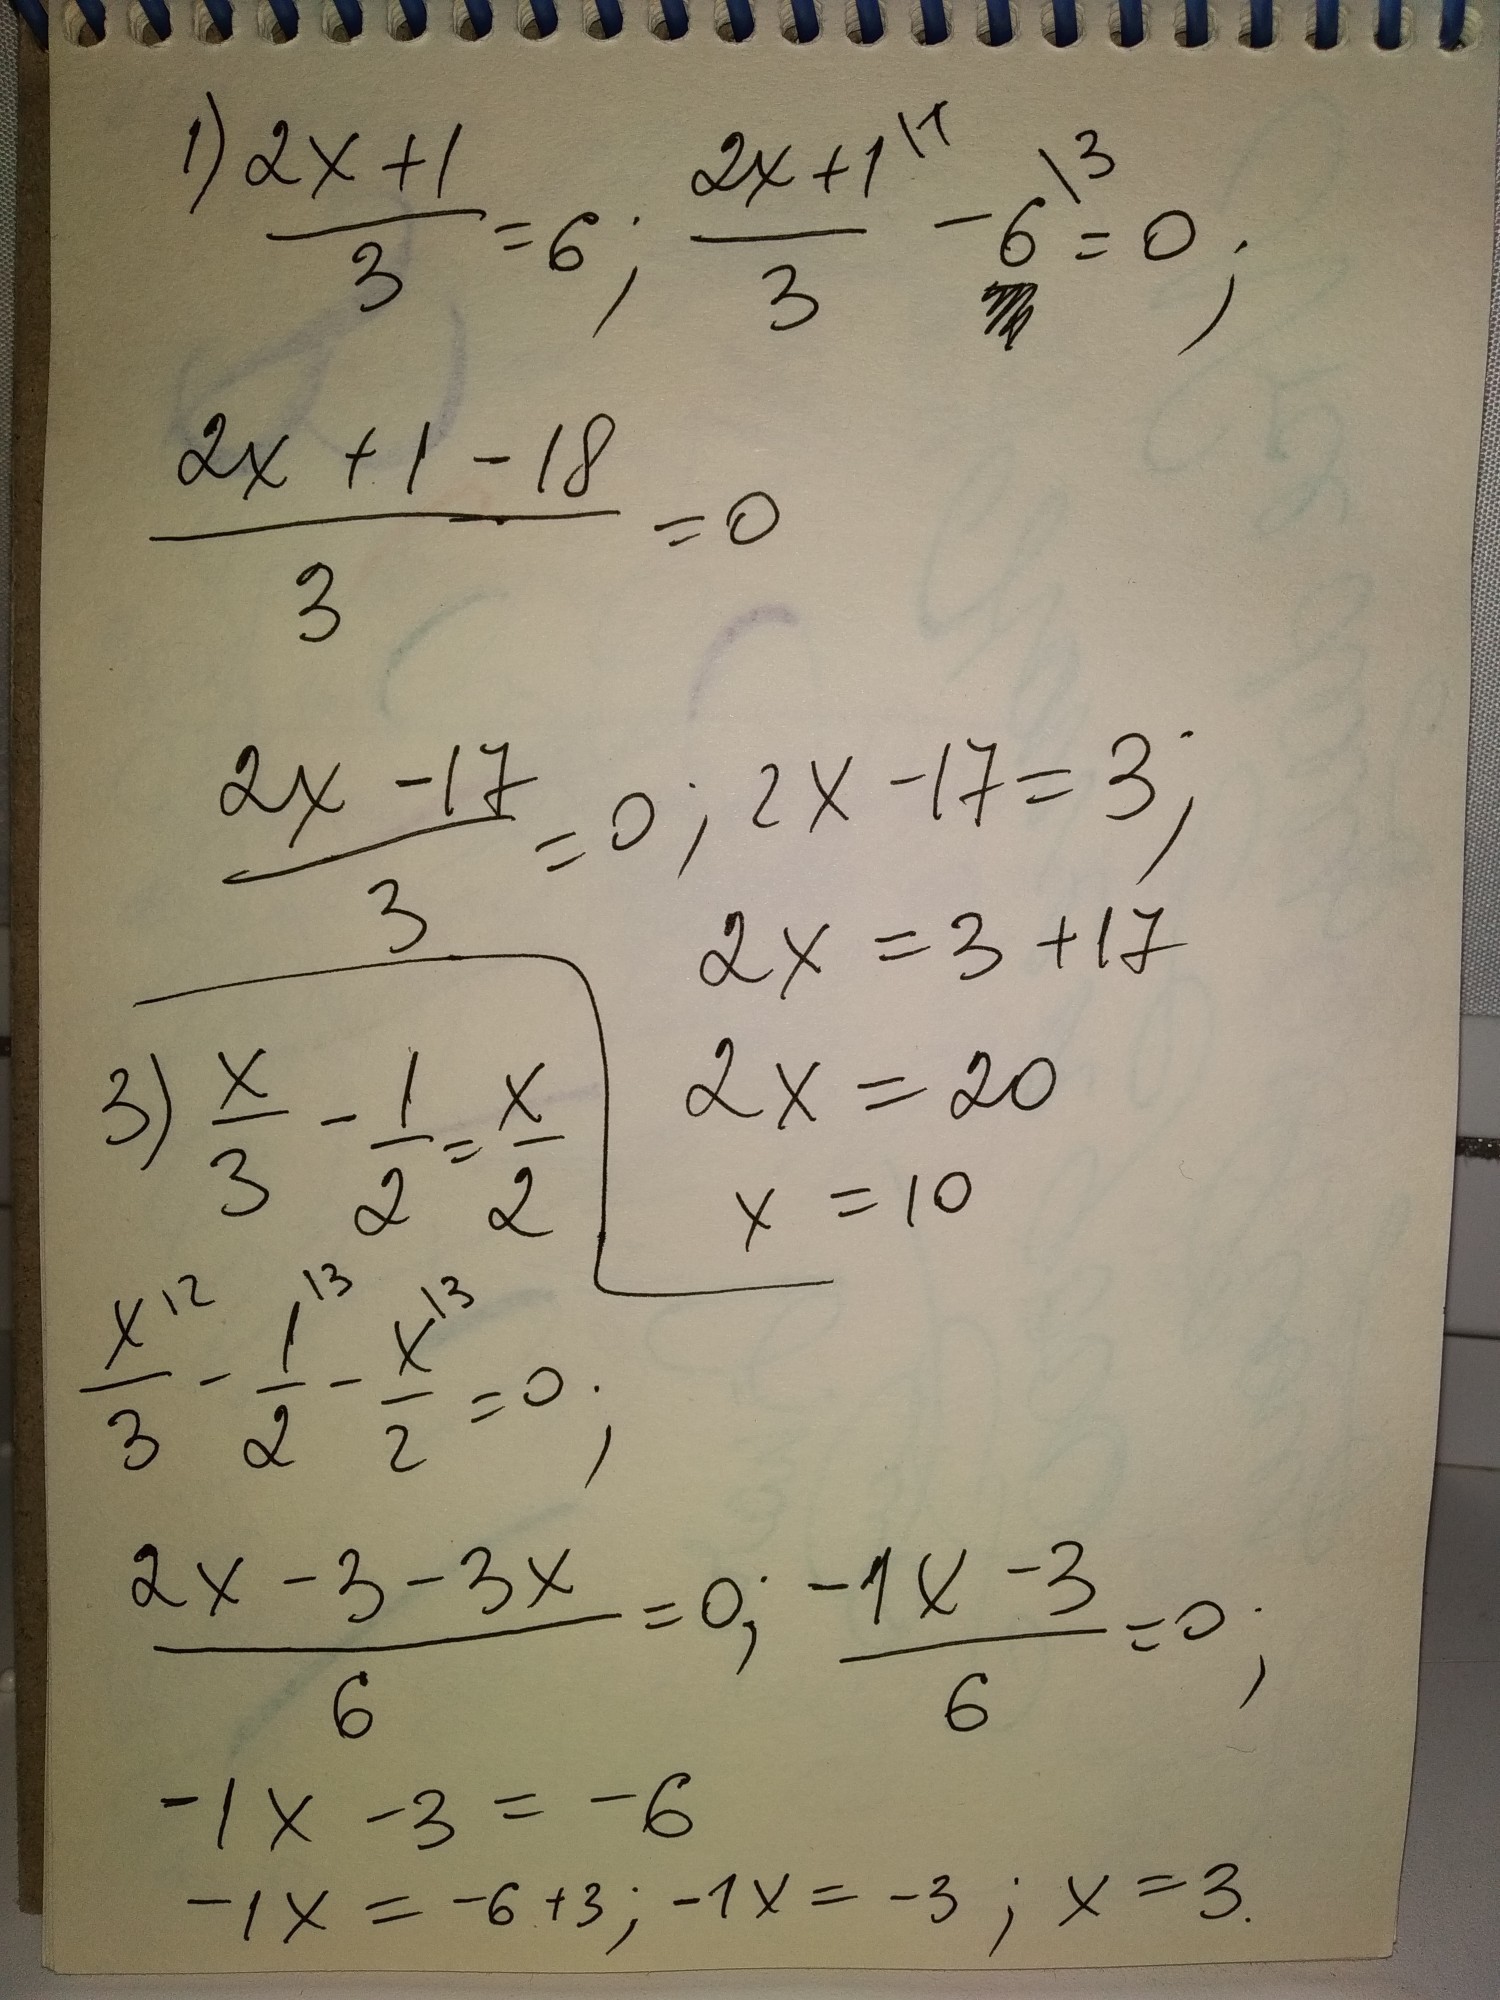 1) (2x+1)/3 = 6; (2x+1\1)/3 - 6\3 = 0;
(2x + 1 - 18)/3 = 0
(2x - 17)/3 = 0; 2x - 17 = 3;
2x = 3 + 17
2x = 20
x = 10
3) x/3 - 1/2 = x/2
x\2/3 - 1\3/2 - x\3/2 = 0;
(2x - 3 - 3x)/6 = 0; (-1x - 3)/6 = 0;
-1x - 3 = -6
-1x = -6 + 3; -1x = -3; x = 3.